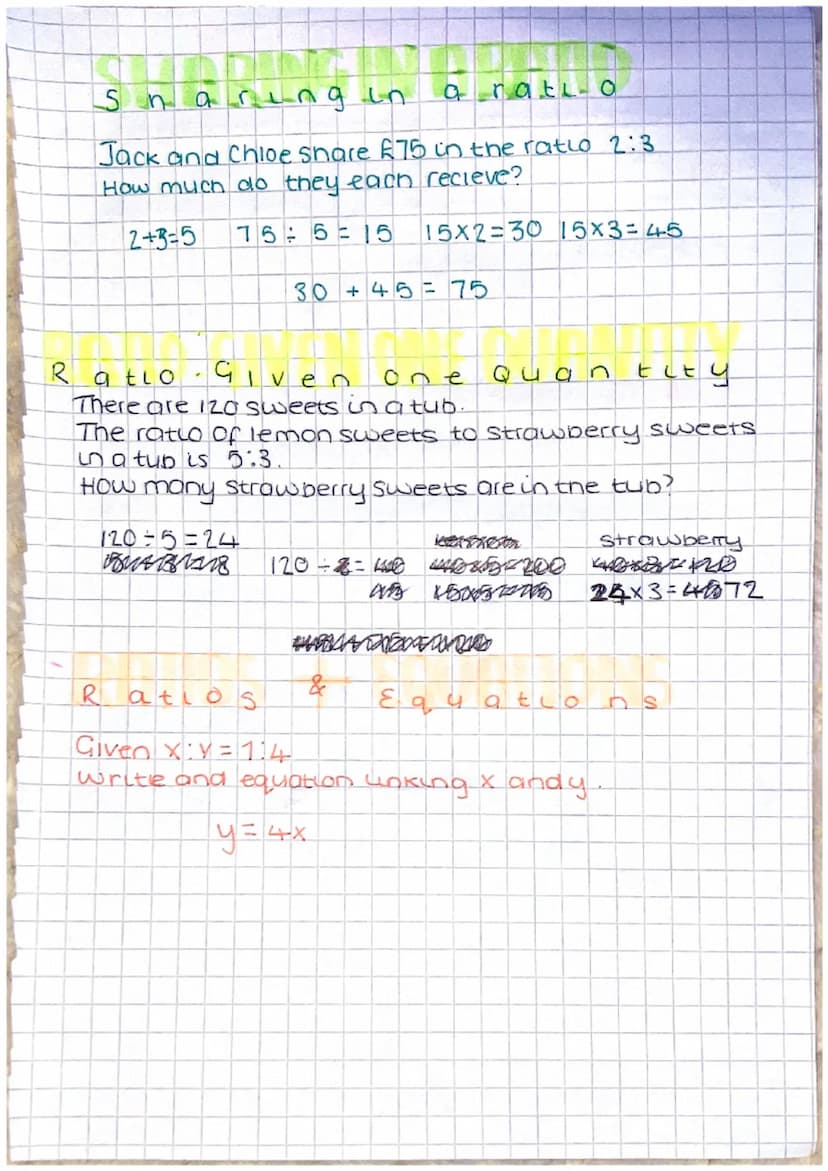 SHARING IN A RATIO
Sharing in a ratio
Jack and Chloe share £75 in the ratio 2:3
How much do they each recieve?
2+3=5 75÷5=15 15x2=30 15x3=45
30+45=75
RATIO GIVEN ONE QUANTITY
Ratio Given one Quantity
There are 120 sweets in a tub.
The ratio of lemon sweets to strawberry sweets
in a tub is 5:3.
How many strawberry sweets are in the tub?
120÷5=24 strawberry
120÷ =
24x3= 72
RATIOS + EQUATIONS
Ratios & Equations
Given x:y=1:4
write and equation linking x and y.
y=4x